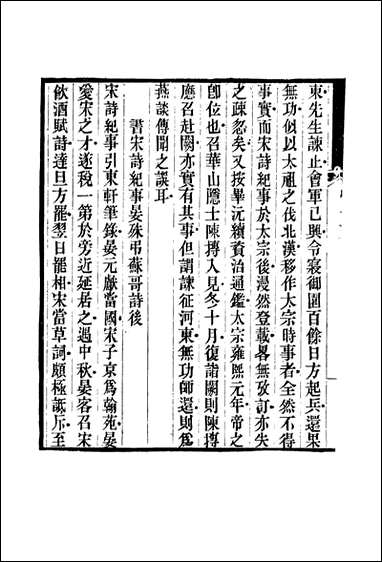 東先生諫止會軍已興令寢御園百餘日方起兵還果
無功似以太祖之伐北漢移作太宗時事者全然不得
事實而宋詩紀事於太宗後漫然登載畧無攷訂亦失
之疎忽矣又按畢沅續資治通鑑太宗雍熙元年帝之
卽位也召華山隱士陳摶入見冬十月復詣闕則陳摶
應召赴闕亦實有其事但謂諫征河東無功師還則爲
燕談傳聞之誤耳
書宋詩紀事晏殊弔蘇哥詩後
宋詩紀事引東軒筆錄晏元獻當國宋子京爲翰苑晏
愛宋之才遂稅一第於旁近延居之遇中秋晏客召宋
飲酒賦詩達旦方罷翌日罷相宋當草詞頗極詆斥至